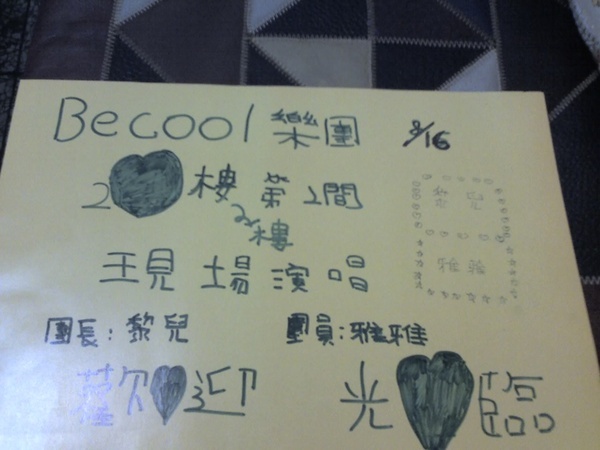 Becool 樂團 8/16
2樓 第2間
2樓
現場演唱
團長:黎兒
團員:雅雅
歡迎 光臨